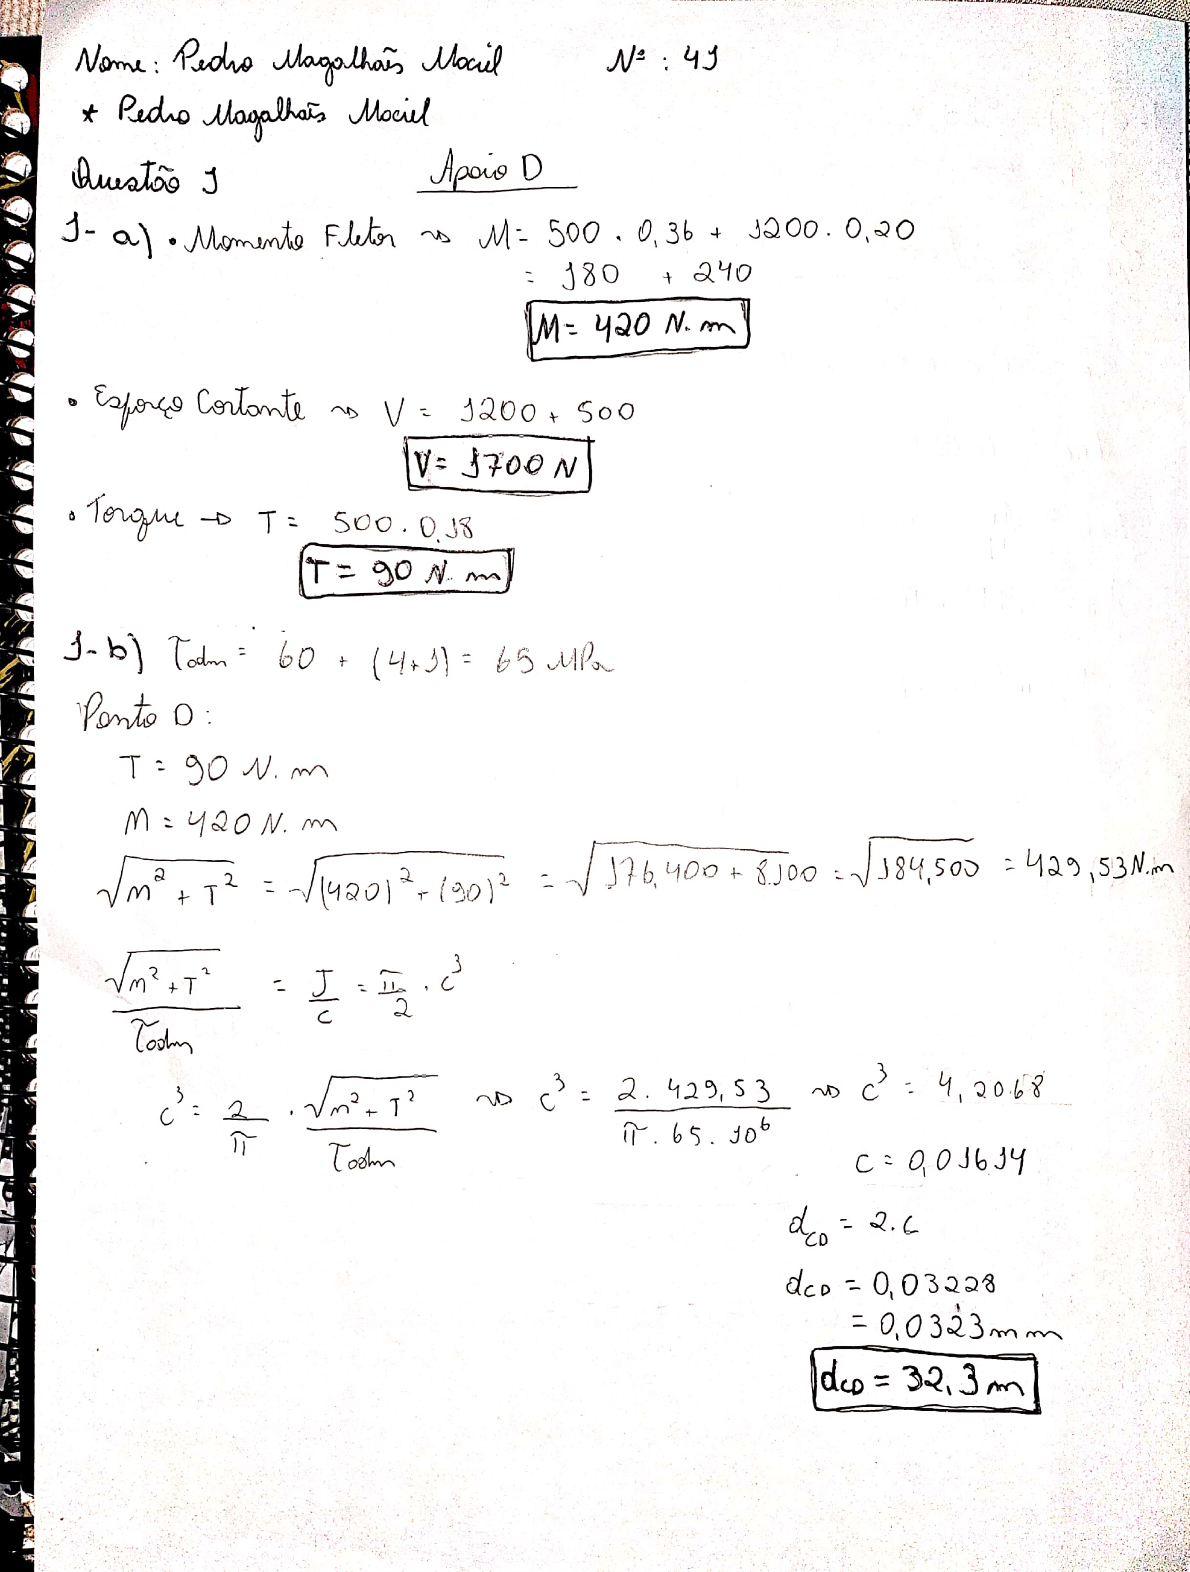 Nome: Pedro Magalhães Maciel Nº : 41
* Pedro Magalhães Maciel
Questão 1 Apoio D
1- a) • Momento Fletor → M = 500 . 0,36 + 1200 . 0,20
= 180 + 240
M = 420 N.m
• Esforço Cortante → V = 1200 + 500
V = 1700 N
• Torque → T = 500 . 0,18
T = 90 N.m
1- b) τadm = 60 + (4+1) = 65 MPa
Ponto D:
T = 90 N.m
M = 420 N.m
√(m² + T²) = √((420)² + (90)²) = √(176,400 + 8.100) = √184,500 = 429,53 N.m
√(m² + T²) / τadm = J/c = π/2 . c³
c³ = 2/π . √(m² + T²) / τadm → c³ = 2 . 429,53 / π . 65 . 10⁶ → c³ = 4,2068
c = 0,01614
dCD = 2.c
dCD = 0,03228
= 0,0323 mm
dCD = 32,3 m